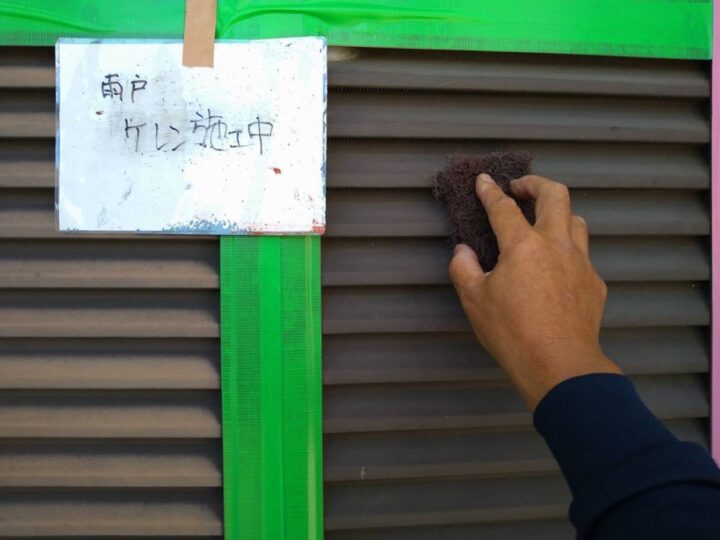 雨戸
ケレン施工中